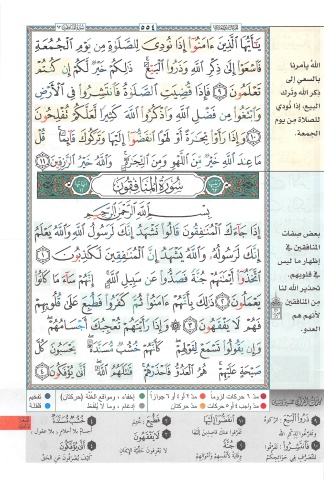 ٥٥٤
يَٰٓأَيُّهَا ٱلَّذِينَ ءَامَنُوٓا۟ إِذَا نُودِىَ لِلصَّلَوٰةِ مِن يَوْمِ ٱلْجُمُعَةِ
فَٱسْعَوْا۟ إِلَىٰ ذِكْرِ ٱللَّهِ وَذَرُوا۟ ٱلْبَيْعَ ۚ ذَٰلِكُمْ خَيْرٌ لَّكُمْ إِن كُنتُمْ
تَعْلَمُونَ ٩ فَإِذَا قُضِيَتِ ٱلصَّلَوٰةُ فَٱنتَشِرُوا۟ فِى ٱلْأَرْضِ
وَٱبْتَغُوا۟ مِن فَضْلِ ٱللَّهِ وَٱذْكُرُوا۟ ٱللَّهَ كَثِيرًا لَّعَلَّكُمْ تُفْلِحُونَ
١٠ وَإِذَا رَأَوْا۟ تِجَٰرَةً أَوْ لَهْوًا ٱنفَضُّوٓا۟ إِلَيْهَا وَتَرَكُوكَ قَآئِمًا ۚ قُلْ
مَا عِندَ ٱللَّهِ خَيْرٌ مِّنَ ٱللَّهْوِ وَمِنَ ٱلتِّجَٰرَةِ ۚ وَٱللَّهُ خَيْرُ ٱلرَّٰزِقِينَ ١١
سُورَةُ المُنَافِقُونَ
بِسْمِ ٱللَّهِ ٱلرَّحْمَٰنِ ٱلرَّحِيمِ
إِذَا جَآءَكَ ٱلْمُنَٰفِقُونَ قَالُوا۟ نَشْهَدُ إِنَّكَ لَرَسُولُ ٱللَّهِ ۗ وَٱللَّهُ يَعْلَمُ
إِنَّكَ لَرَسُولُهُۥ وَٱللَّهُ يَشْهَدُ إِنَّ ٱلْمُنَٰفِقِينَ لَكَٰذِبُونَ ١
ٱتَّخَذُوٓا۟ أَيْمَٰنَهُمْ جُنَّةً فَصَدُّوا۟ عَن سَبِيلِ ٱللَّهِ ۚ إِنَّهُمْ سَآءَ مَا كَانُوا۟
يَعْمَلُونَ ٢ ذَٰلِكَ بِأَنَّهُمْ ءَامَنُوا۟ ثُمَّ كَفَرُوا۟ فَطُبِعَ عَلَىٰ قُلُوبِهِمْ
فَهُمْ لَا يَفْقَهُونَ ٣ وَإِذَا رَأَيْتَهُمْ تُعْجِبُكَ أَجْسَامُهُمْ ۖ
وَإِن يَقُولُوا۟ تَسْمَعْ لِقَوْلِهِمْ ۖ كَأَنَّهُمْ خُشُبٌ مُّسَنَّدَةٌ ۖ يَحْسَبُونَ كُلَّ
صَيْحَةٍ عَلَيْهِمْ ۚ هُمُ ٱلْعَدُوُّ فَٱحْذَرْهُمْ ۚ قَٰتَلَهُمُ ٱللَّهُ ۖ أَنَّىٰ يُؤْفَكُونَ ٤
اللهُ يأمرنا
بالسعي إلى
ذِكر الله وترك
البيع، إذا نُودي
للصلاة من يوم
الجمعة.
بعض صفات
المنافقين في
إظهار ما ليس
في قلوبهم.
تحذير الله لنا
من المنافقين
لأنهم هم
العدو.
مدّ ٦ حركات لزوماً
مدّ ٢ أو ٤ أو ٦ جوازاً
إخفاء، ومواقع الغُنَّة (حركتان)
تفخيم
مدّ واجب ٤ أو ٥ حركات
مدّ حركتان
إدغام، وما لا يُلفَظ
قلقلة